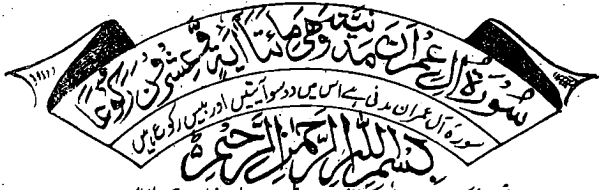 سُورَةُ اٰلِ عِمْرَانَ مَدَنِيَّةٌ وَّهِيَ مِائَتَا اٰيَةٍ وَّعِشْرُوْنَ رُكُوْعًا
سورۂ آل عمران مدنی ہے اس میں دو سو آیتیں اور بیس رکوع ہیں
بِسْمِ اللّٰهِ الرَّحْمٰنِ الرَّحِيْمِ